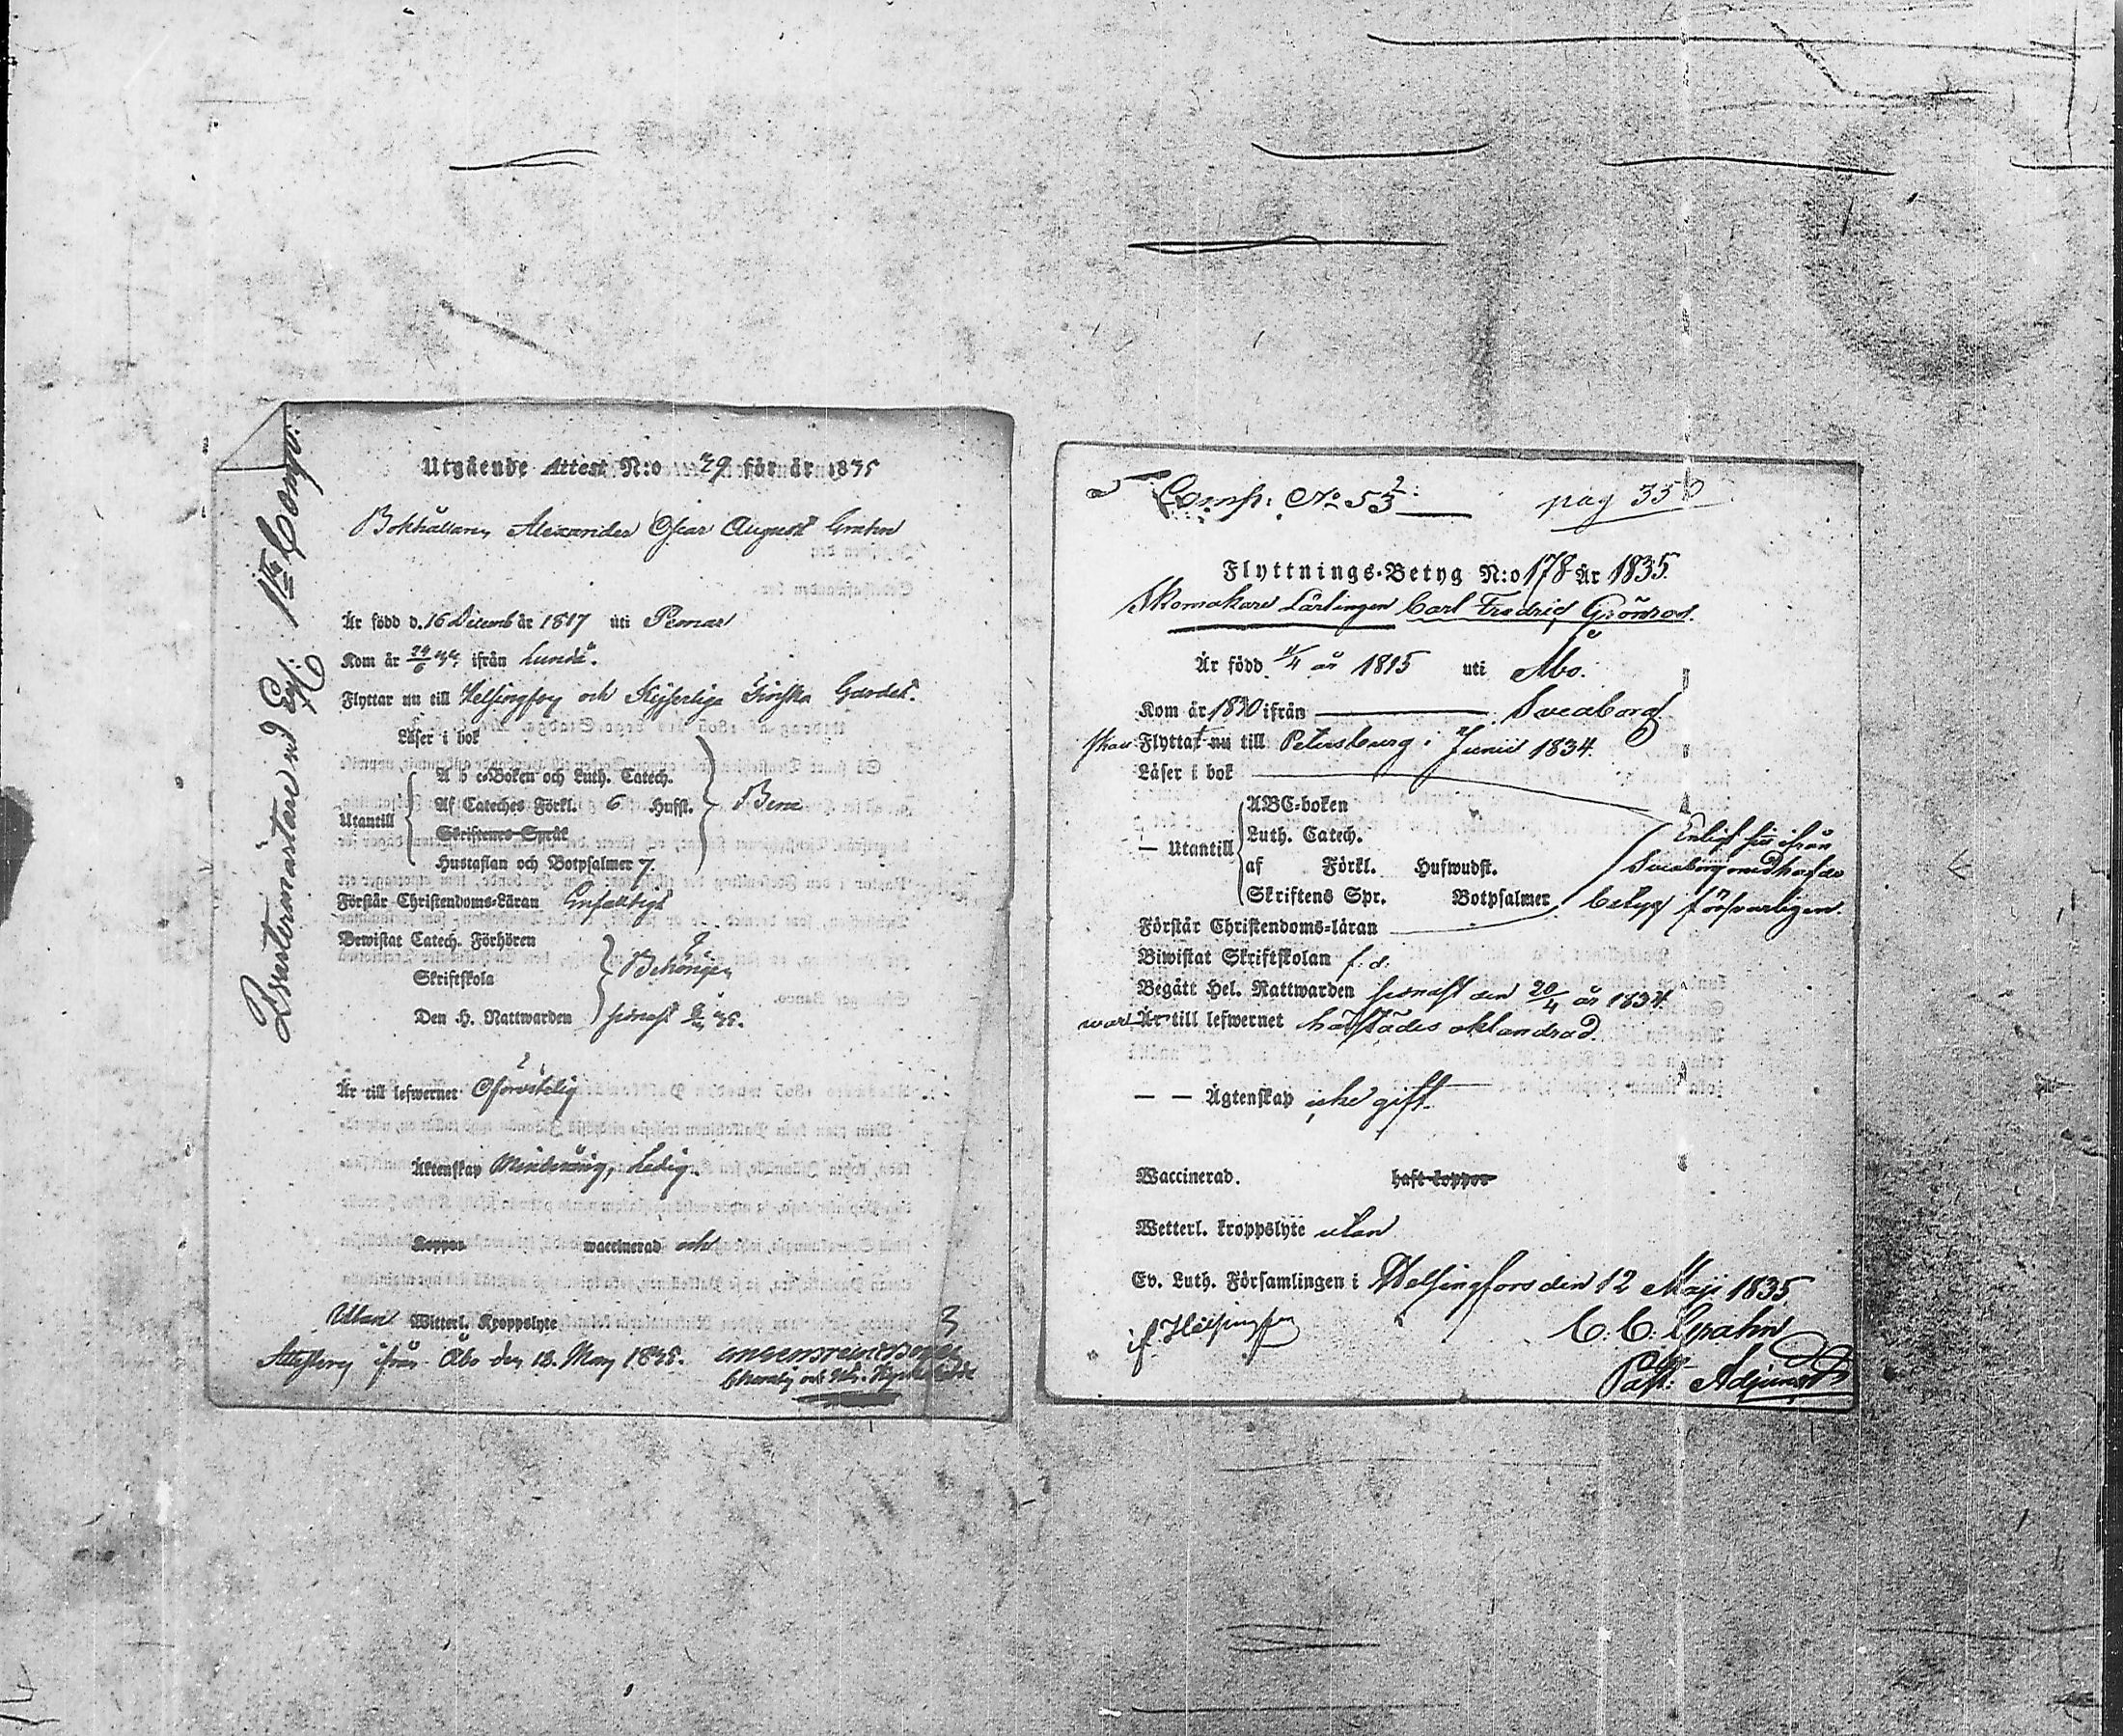 Utgående Attest N:o 29 för år 1835
Bokhållaren Alexander Oscar August Grahn
Är född d. 16 Decemb år 1817 uti Pemar
Kom år 24/6 ifrån Lundo.
Flyttar nu till Helsingfors och Keijserliga Finska Gardet.
Läser i bok
A b c-Boken och Luth. Catech.
Af Cateches Förkl. 6 Hufst.
Utantill
Skriftenes Språk
Hustaflan och Botpsalmer 7.
Förstår Christendoms-Läran Enfaldigt
Bewistat Catech. Förhören
Skriftskola
Behörigen
Den H. Nattwarden senast
Är till lefwernet Oförvitelig
Äktenskap Minderårig, Ledig.
Koppor waccinerad och
Utan Witterl. Kroppslyte
ifrån Åbo den 13. May 1835.
1ste Comp.
Comp: No 53
pag 35
Flyttnings-Betyg N:o 178 År 1835.
Skomakare Lärlingen Carl Fredric Grönros.
Är född 11/4 år 1815 uti Åbo.
Kom år 1830 ifrån Sveaborg
skall Flyttat nu till Petersburg i Junii 1834.
Läser i bok
ABC-boken
Luth. Catech.
— Utantill
af Förkl. Hufwudst.
Skriftens Spr. Botpsalmer
Enligt sin ifrån
Sveaborg medhafde
betyg försvarligen.
Förstår Christendoms-läran
Biwistat Skriftskolan f. d.
Begått Hel. Nattwarden senast den 20/4 år 1834.
war Är till lefwernet härstädes oklandrad.
— — Ägtenskap icke gift.
Waccinerad. haft koppor
Wetterl. kroppslyte utan
Ev. Luth. Församlingen i Helsingfors den 12 Maji 1835.
C. C. Grahn
Past: Adjunct